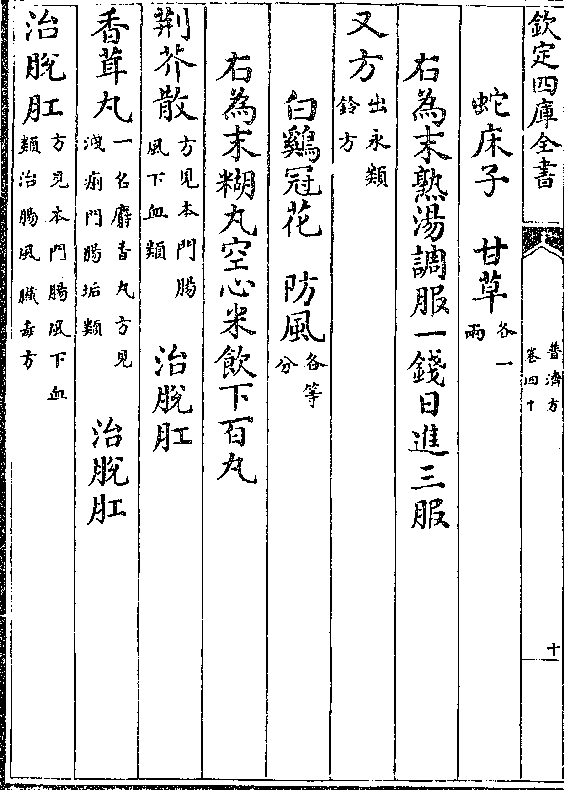 欽定四庫全書
普濟方
卷四十
十
蛇床子 甘草各一兩
右為末熟湯調服一錢日進三服
又方出永類鈐方
白鷄冠花 防風各等分
右為末糊丸空心米飲下百丸
荆芥散方見本門腸風下血類 治脫肛
香茸丸一名麝香丸方見洩痢門腸垢類 治脫肛
治脫肛方見本門腸風下血類治腸風臟毒方